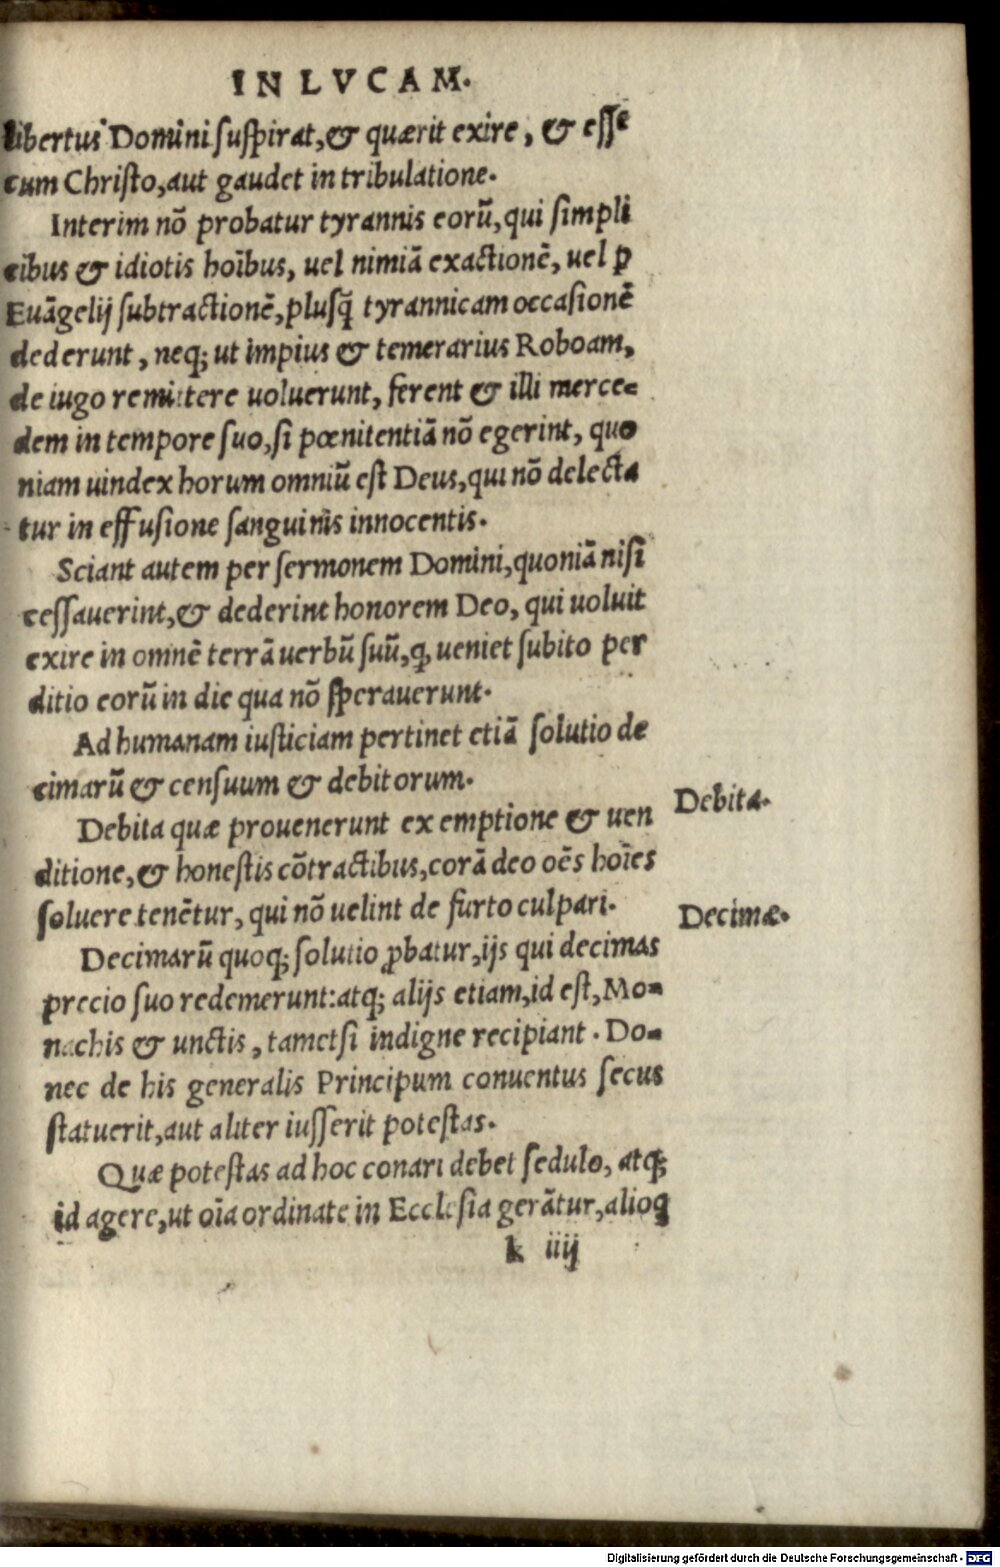 IN LVCAM.
libertus Domini suspirat,& quærit exire, & esse
cum Christo,aut gaudet in tribulatione.
Interim nõ probatur tyrannis eorũ,qui simpli
cibus & idiotis hoĩbus, uel nimiã exactionẽ, uel ꝑ
Euãgelij subtractionẽ,plusq̃ tyrannicam occasionẽ
dederunt, neq; ut impius & temerarius Roboam,
de iugo remittere uoluerunt, ferent & illi merce=
dem in tempore suo,si pœnitentiã nõ egerint, quo
niam uindex horum omniũ est Deus,qui nõ delecta
tur in effusione sanguinis innocentis.
Sciant autem per sermonem Domini,quoniã nisi
cessauerint,& dederint honorem Deo, qui uoluit
exire in omnẽ terrã uerbũ suũ,q, ueniet subito per
ditio eorũ in die qua nõ sperauerunt.
Ad humanam iusticiam pertinet etiã solutio de
cimarũ & censuum & debitorum.
Debita.
Debita quæ prouenerunt ex emptione & uen
ditione,& honestis cõtractibus,corã deo oẽs hoĩes
soluere tenẽtur, qui nõ uelint de furto culpari.
Decimæ.
Decimarũ quoq; solutio ꝓbatur,ijs qui decimas
precio suo redemerunt:atq; alijs etiam,id est, Mo=
nachis & unctis, tametsi indigne recipiant. Do=
nec de his generalis Principum conuentus secus
statuerit,aut aliter iusserit potestas.
Quæ potestas ad hoc conari debet sedulo, atq;
id agere,ut oĩa ordinate in Ecclesia gerãtur,alioq
k iiij
Digitalisierung gefördert durch die Deutsche Forschungsgemeinschaft - DFG